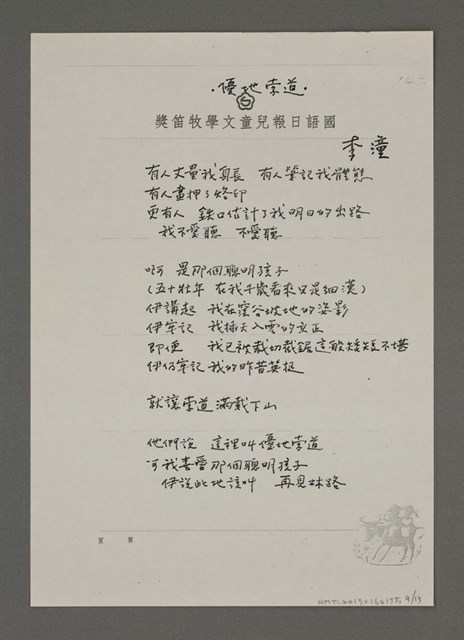 ·優地索道·
國語日報兒童文學牧笛獎
李潼
有人丈量我身長 有人筆記我體態
有人畫押了烙印
更有人 鐵口估計了我明日的出路
我不愛聽 不愛聽
啊 是那個聰明孩子
(五十壯年 在我千歲看來只是細漢)
伊講起 我在深谷坡地的姿影
伊牢記 我插天入雲的立正
即使 我已被裁切截鋸這般矮短不堪
伊仍牢記我的昨昔英挺
就讓索道滿載下山
他們說 這裡叫優地索道
可我喜愛那個聰明孩子
伊說此地該叫 再見林路
頁 第
9/13